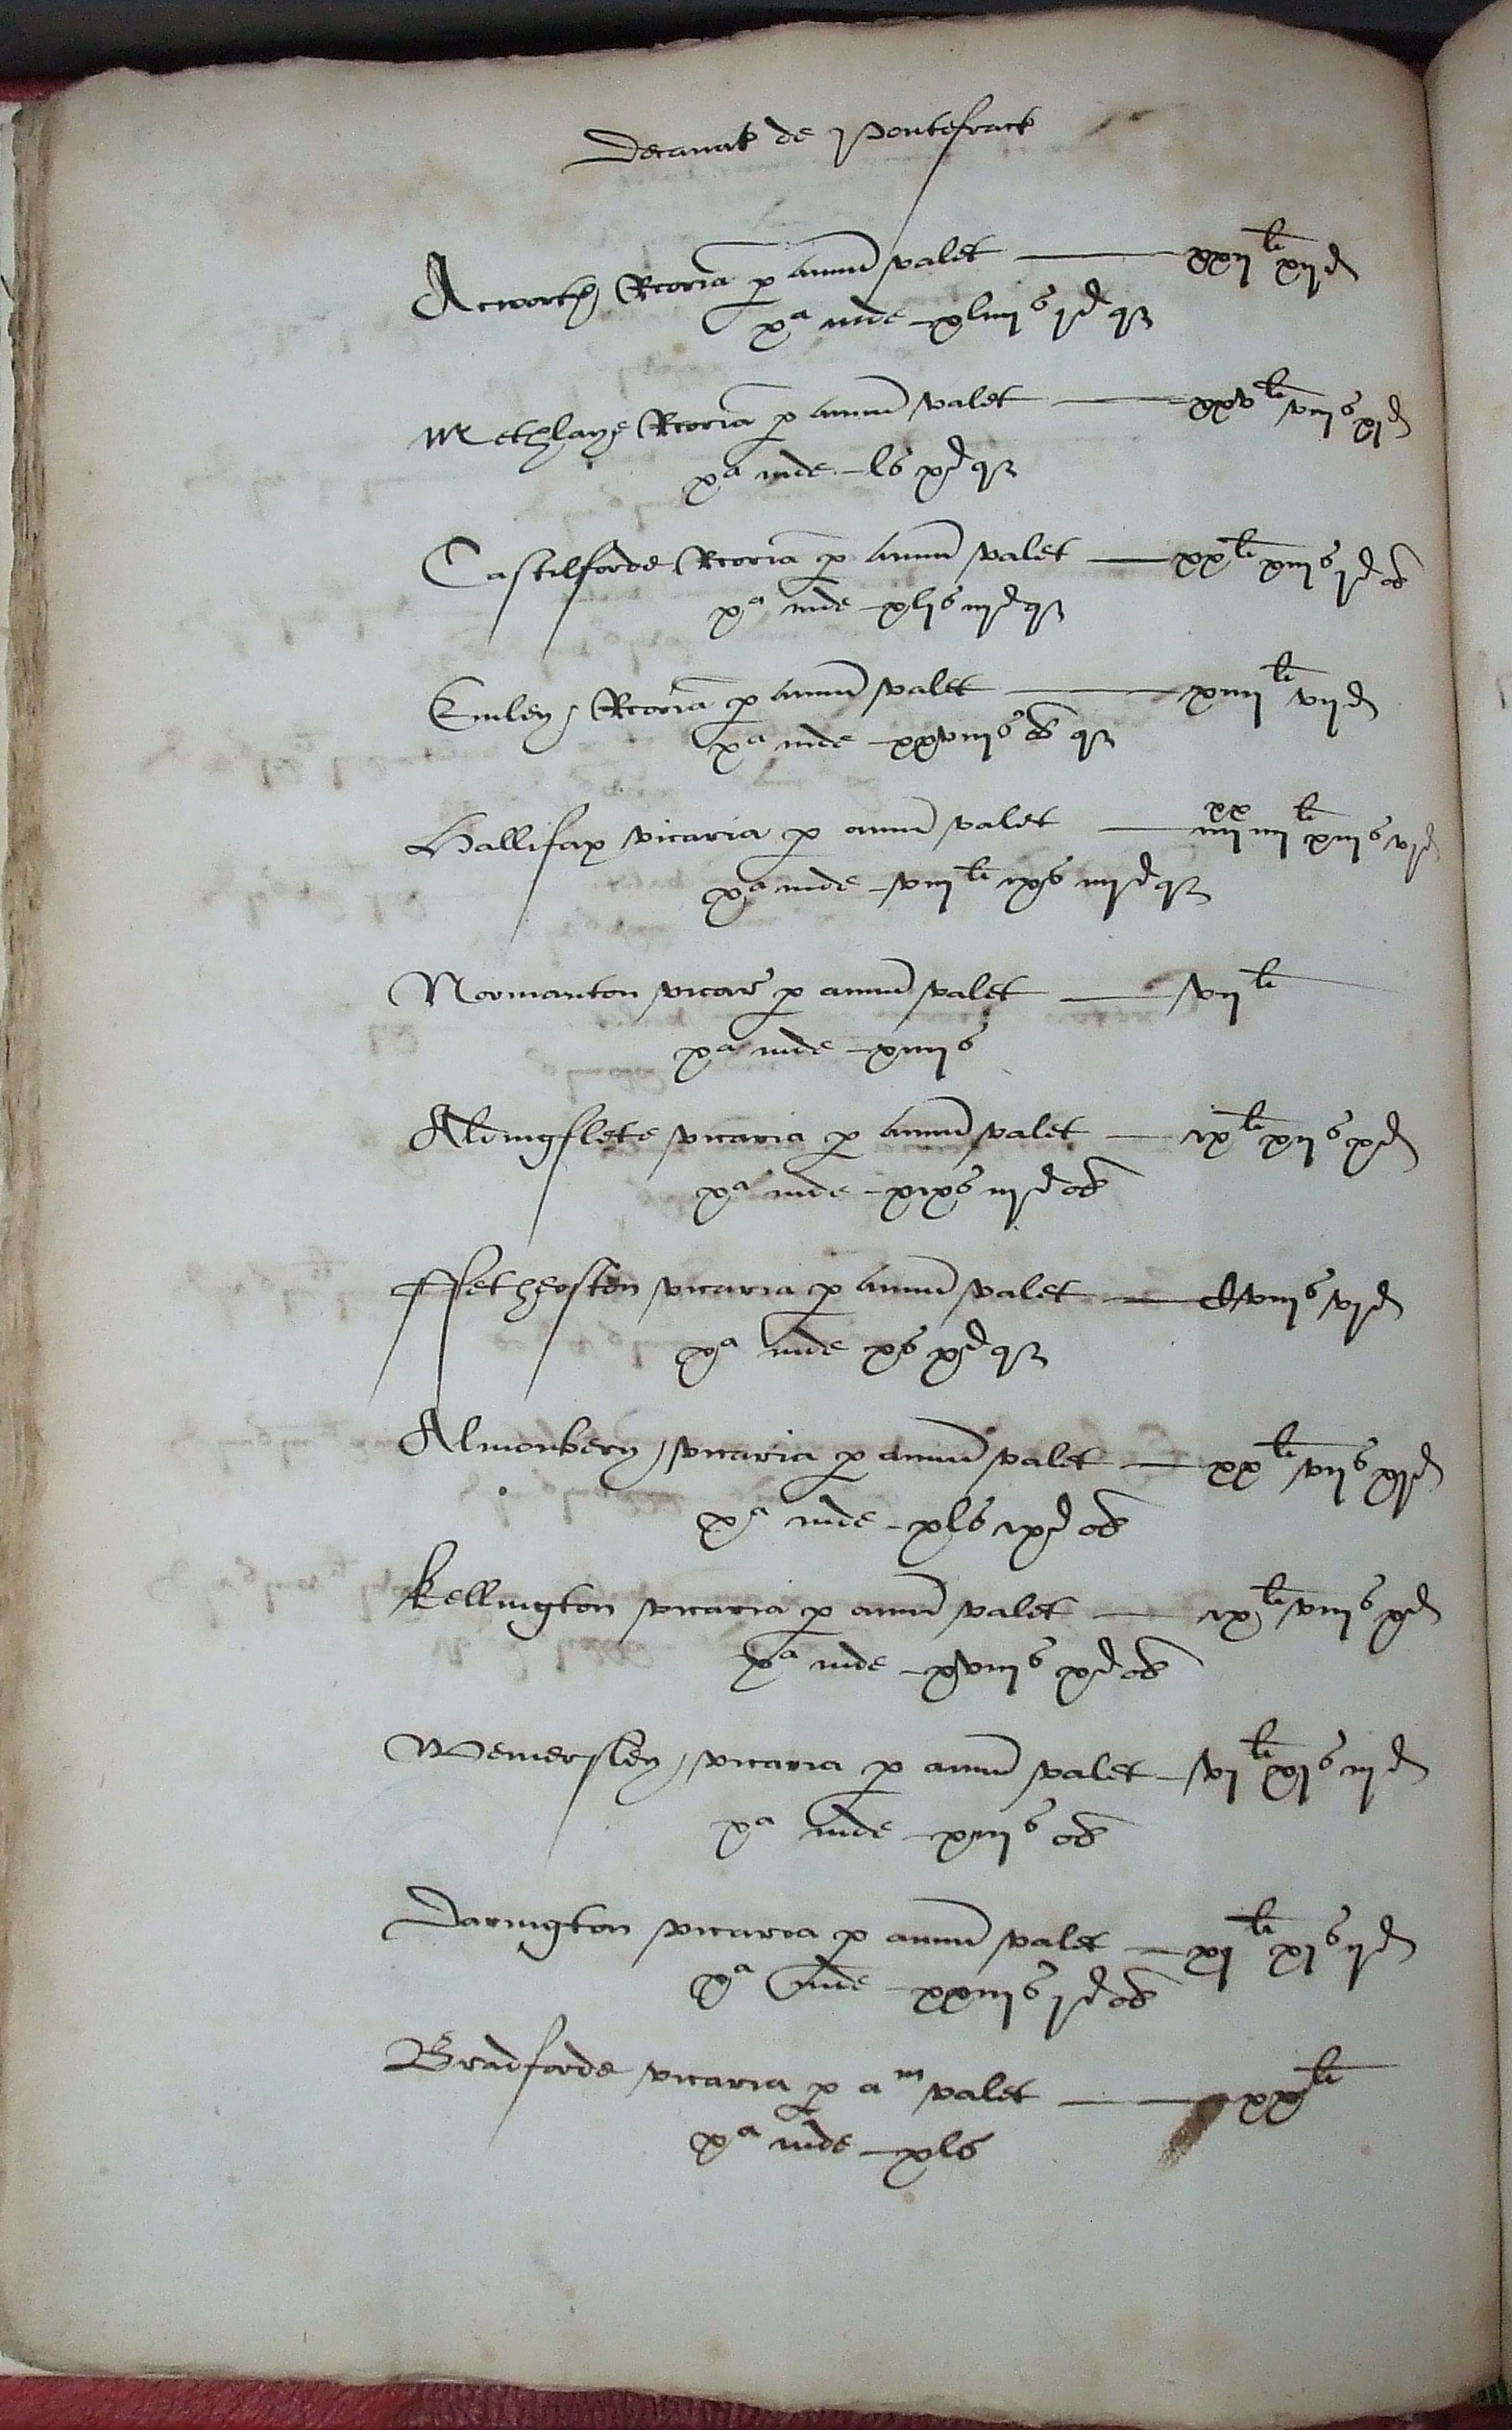 Decanat de Pontefract
Acworth Rcoria p annu valet — xxij li xij d
xa inde – xliiij s j d qr
Methlaye Rcoria p annu valet — xxv li viij s xj d
xa inde – l s x d qr
Castilforde Rcoria p annu valet — xx li xiij s j d ob
xa inde – xlj s iij d qr
Emley Rcoria p annu valet — xiiij li vij d
xa inde – xxviij s ob qr
Hallifax vicaria p annu valet — iiij xx iiij li xiij s vj d
xa inde – viij li ix s iiij d qr
Normanton vicar p annu valet — vij li
xa inde – xiiij s
Aldingflete vicaria p annu valet — ix li xij s x d
xa inde – xix s iij d ob
Ffetherston vicaria p annu valet — cviij s vj d
xa inde x s x d qr
Almonbery vicaria p annu valet — xx li vij s xj d
xa inde – xl s ix d ob
Kellington vicaria p annu valet — ix li viij s x d
xa inde – xviij s x d ob
Wemersley vicaria p annu valet – vj li xj s iij d
xa inde – xiij s ob
Darington vicaria p annu valet – xj li xj s ij d
xa inde – xxiij s j d ob
Bradforde vicaria p am valet — xx li
xa inde – xl s